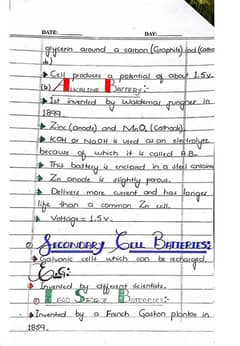 DATE: DAY:
glycerin around a carbon (Graphite) rod (Cathode)
→ Cell produces a potential of about 1.5v.
(b) / ALKALINE BATTERY:
→ 1st invented by Waldemar Jungner in
1899.
→ Zinc (anode) and MnO₂ (Cathode).
→ KOH or NaOH is used as an electrolyte
because of which it is called A.B.
→ This battery is enclosed in a steel container
→ Zn anode is slightly porous.
→ Delivers more current and has longer
life than a common Zn cell.
→ Voltage = 1.5v.
SECONDARY CELL BATTERIES:
→ Galvanic cells which can be recharged.
E.G:
→ Invented by different scientists.
① LEAD STORAGE BATTERIES:
→ Invented by a French Gaston plante in
1859.